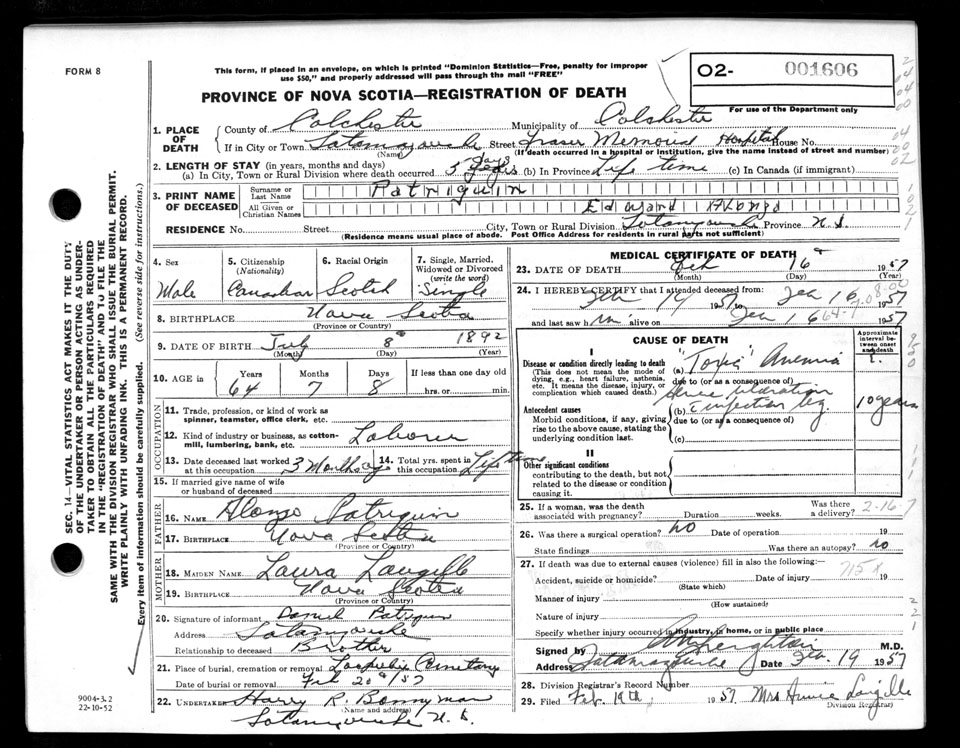 FORM 8
This form, if placed in an envelope, on which is printed "Dominion Statistics—Free, penalty for improper
use $50," and properly addressed will pass through the mail "FREE"
O2- 001606
For use of the Department only
PROVINCE OF NOVA SCOTIA—REGISTRATION OF DEATH
1. PLACE OF DEATH
County of Colchester Municipality of Colchester
If in City or Town Tatamagouche Street Fraser Memorial Hospital House No.
(Name) (If death occurred in a hospital or institution, give the name instead of street and number)
2. LENGTH OF STAY (in years, months and days)
(a) In City, Town or Rural Division where death occurred 5 days (b) In Province Life time (c) In Canada (if immigrant)
3. PRINT NAME OF DECEASED
Surname or Last Name Patriquin
All Given or Christian Names Edward Alonzo
RESIDENCE No. Street City, Town or Rural Division Tatamagouche Province N.S.
(Residence means usual place of abode. Post Office Address for residents in rural parts not sufficient)
4. Sex Male
5. Citizenship (Nationality) Canadian
6. Racial Origin Scotch
7. Single, Married, Widowed or Divorced (write the word) Single
8. BIRTHPLACE Nova Scotia
(Province or Country)
9. DATE OF BIRTH July 8 1892
(Month) (Day) (Year)
10. AGE in Years Months Days If less than one day old
64 7 8 hrs. or min.
OCCUPATION
11. Trade, profession, or kind of work as
spinner, teamster, office clerk, etc.
12. Kind of industry or business, as cotton-
mill, lumbering, bank, etc. Laborer
13. Date deceased last worked at this occupation 3 Months ago
14. Total yrs. spent in this occupation Lifetime
15. If married give name of wife
or husband of deceased
FATHER
16. NAME Alonzo Patriquin
17. BIRTHPLACE Nova Scotia
(Province or Country)
MOTHER
18. MAIDEN NAME Laura Langille
19. BIRTHPLACE Nova Scotia
(Province or Country)
20. Signature of informant Daniel Patriquin
Address Tatamagouche
Relationship to deceased Brother
21. Place of burial, cremation or removal Cemetery
Date of burial or removal Feb 20 /57
22. UNDERTAKER Harry R. Bonnyman
(Name and Address)
Tatamagouche N.S.
MEDICAL CERTIFICATE OF DEATH
23. DATE OF DEATH Feb 16 1957
(Month) (Day) (Year)
24. I HEREBY CERTIFY that I attended deceased from:
Feb 14 1957 to Feb 16 1957
and last saw him alive on Feb 16 1957
CAUSE OF DEATH
Approximate interval between onset and death
I
Disease or condition directly leading to death
(This does not mean the mode of
dying, e.g., heart failure, asthenia,
etc. It means the disease, injury, or
complication which caused death.)
(a) "Toxic" Anemia ?
due to (or as a consequence of)
Antecedent causes
Morbid conditions, if any, giving
rise to the above cause, stating the
underlying condition last.
ulceration
(b) infection leg. 10 years
due to (or as a consequence of)
(c)
II
Other significant conditions
contributing to the death, but not
related to the disease or condition
causing it.
25. If a woman, was the death
associated with pregnancy? Duration weeks. Was there a delivery?
2-16-7
26. Was there a surgical operation? No Date of operation 19
State findings Was there an autopsy? no
27. If death was due to external causes (violence) fill in also the following:—
715x
Accident, suicide or homicide? Date of injury 19
(State which)
Manner of injury
(How sustained)
Nature of injury
Specify whether injury occurred in industry, in home, or in public place
Signed by M.D.
Address Tatamagouche Date Feb. 19 1957
28. Division Registrar's Record Number
29. Filed Feb. 19th, 1957 Mrs Annie Langille
Division Registrar)
SEC. 14—VITAL STATISTICS ACT MAKES IT THE DUTY
OF THE UNDERTAKER OR PERSON ACTING AS UNDER-
TAKER TO OBTAIN ALL THE PARTICULARS REQUIRED
IN THE "REGISTRATION OF DEATH" AND TO FILE THE
SAME WITH THE DIVISION REGISTRAR WHO SHALL ISSUE THE BURIAL PERMIT.
WRITE PLAINLY WITH UNFADING INK. THIS IS A PERMANENT RECORD.
Every item of information should be carefully supplied. (See reverse side for instructions.)
9004-3.2
22-10-52